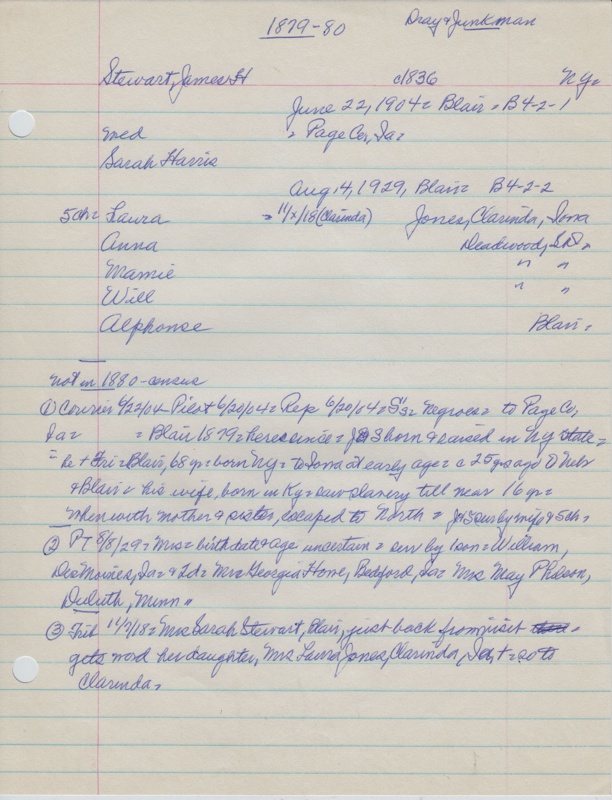 1879-80 Dray & Junkman
Stewart, James H c1836 N.Y.=
June 22, 1904= Blair = B4-2-1
med = Page Co, Ia=
Sarah Harris
Aug 4, 1929, Blair= B4-2-2
5ch= Laura = 11/x/18 (Clarinda) Jones, Clarinda, Iowa
Anna Deadwood, S.D.,
Mamie " "
Will " "
Alphonse Blair=
not in 1880-census
① Courier 6/22/04-Pilot 6/20/04= Rep 6/20/04= Negroes= to Page Co,
Ia= = Blair 1879= here since= born & raised in NY state=
= Blair, 68 yr= born NY= to Iowa at early age= c 25 yrs ago to Nebr
& Blair= his wife, born in Ky= saw slavery till near 16 yr=
when with mother & sister, escaped to North = surv by wife & 5ch=
② PT 8/8/29= Mrs= birth date & age uncertain= surv by 1 son= William,
Des Moines, Ia= & 2d= Mrs Georgia Howe, Bedford, Ia= Mrs May
Duluth, Minn"
③ Trib 11/7/18= Mrs Sarah Stewart, Blair, just back from visit =
gets word her daughter, Mrs Laura Jones, Clarinda, Ia, + = so to
Clarinda,